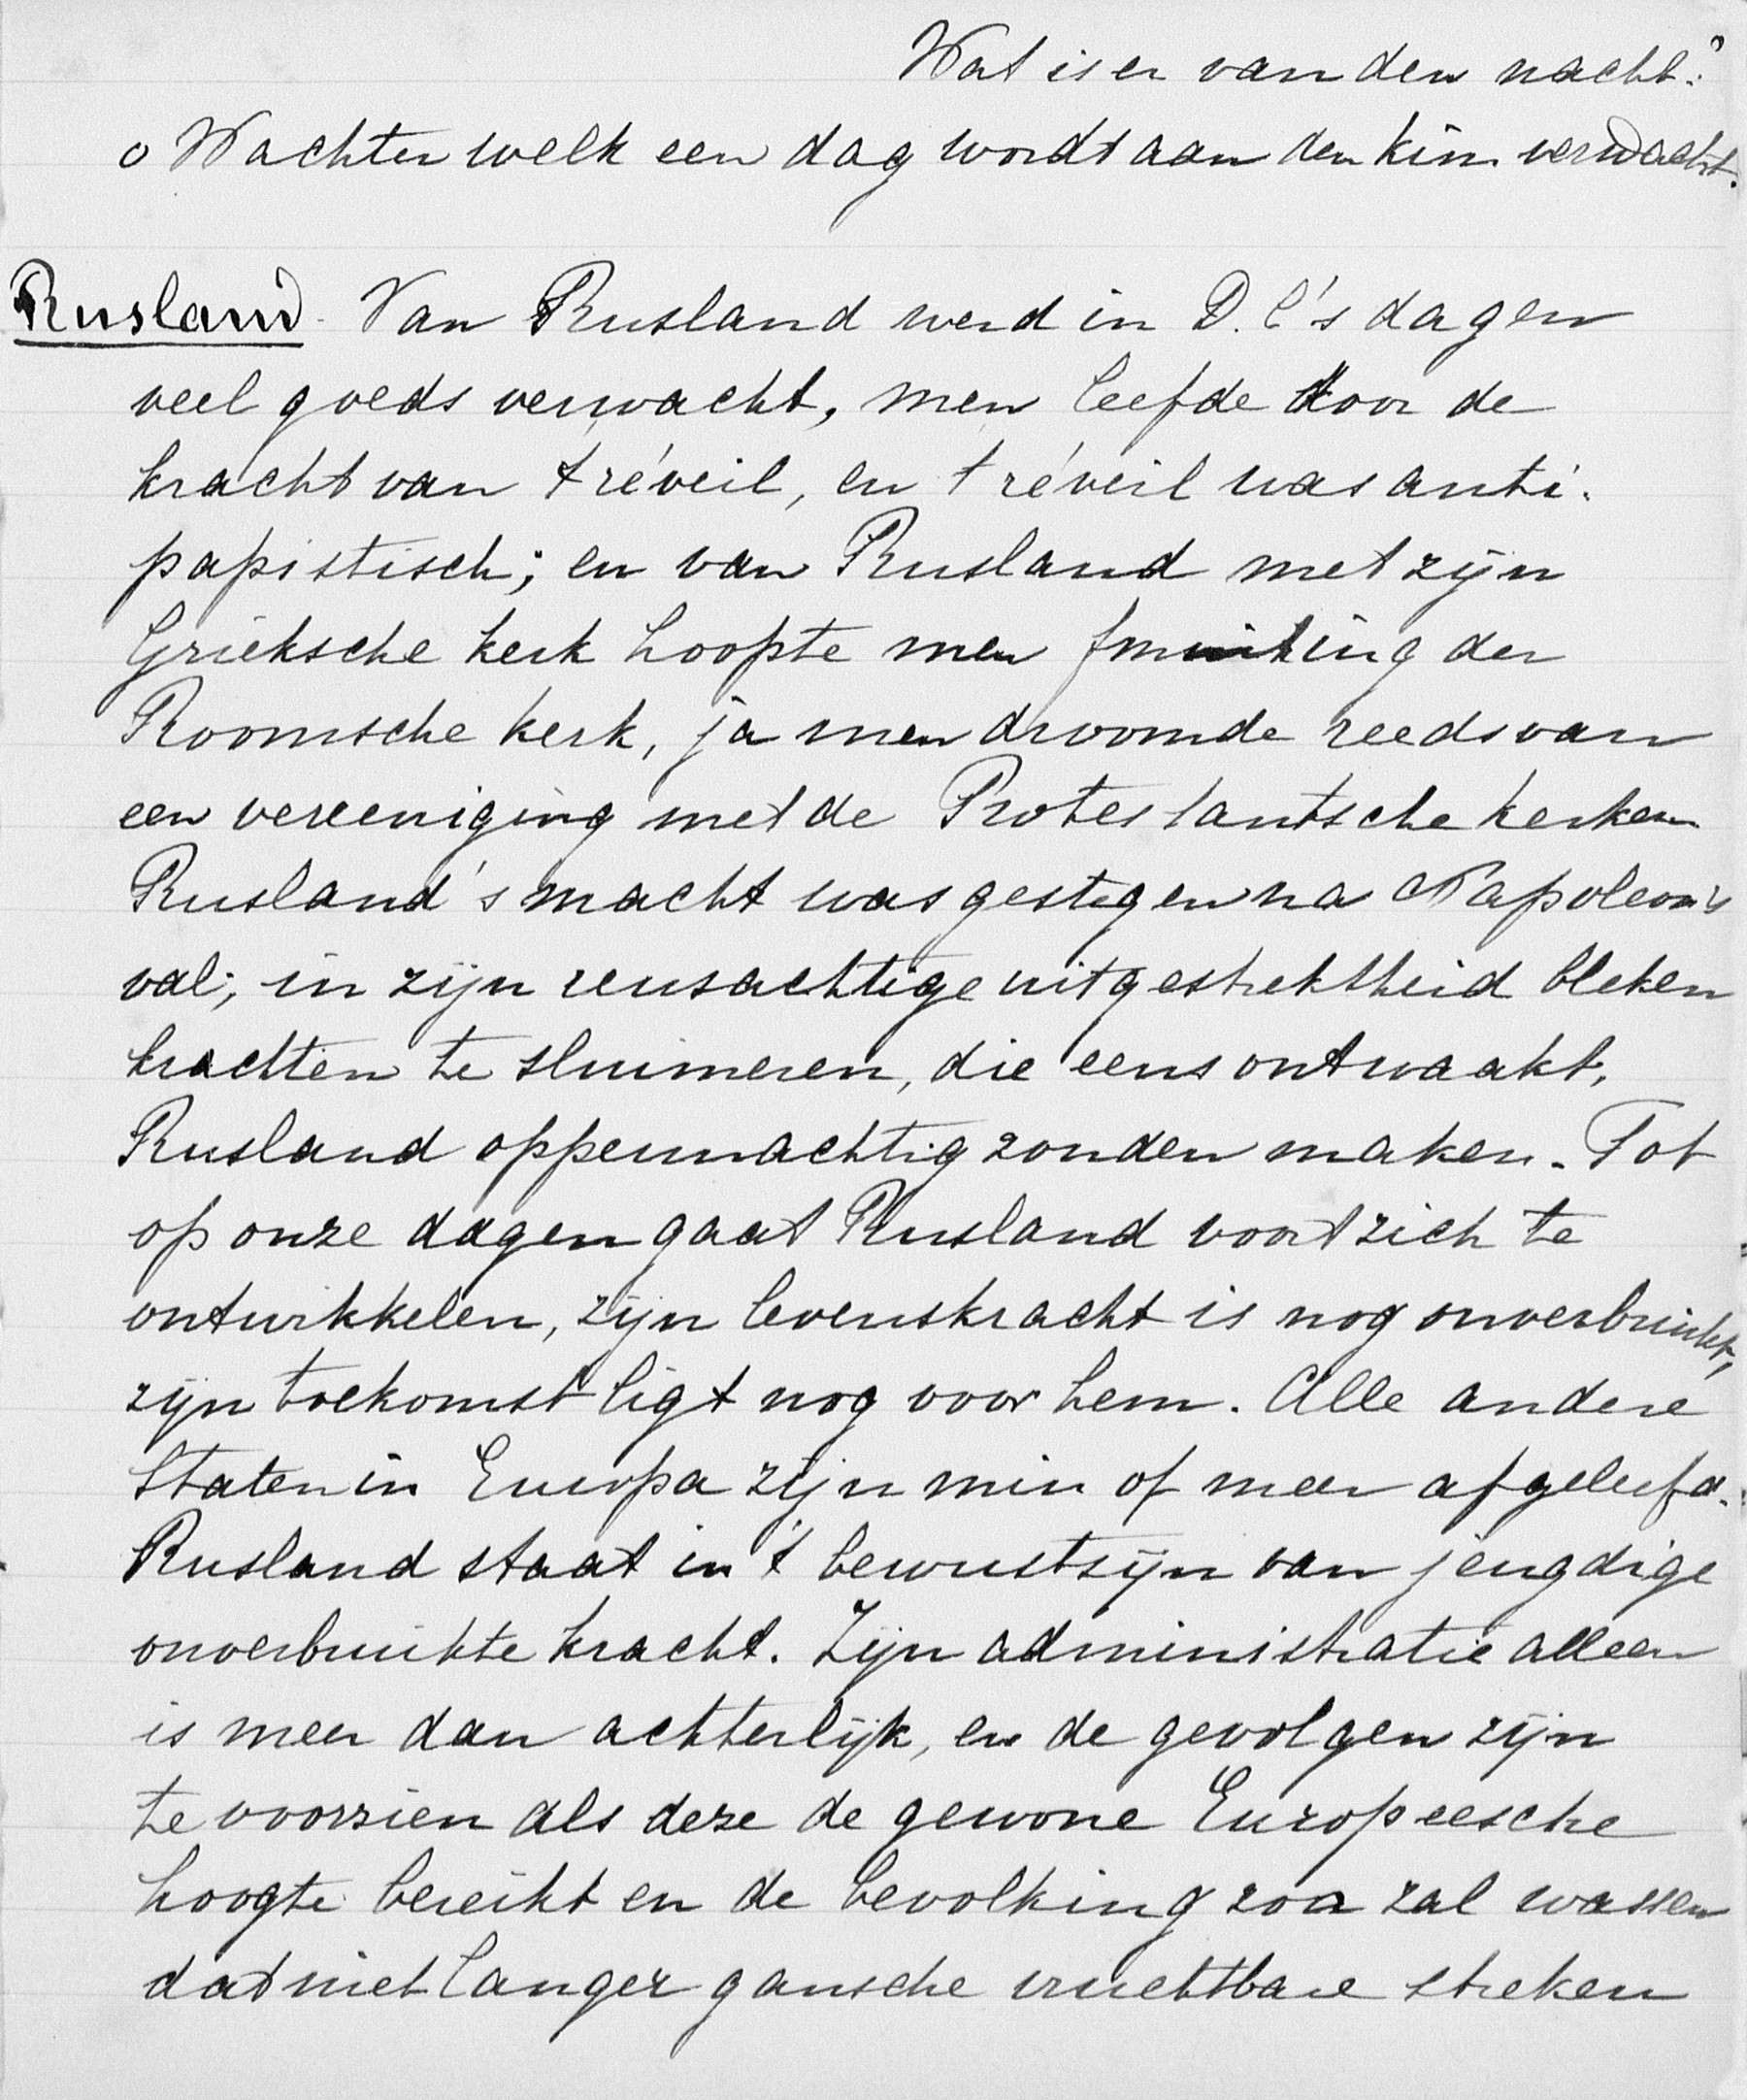 Wat is er van den nacht?
o Wachter welk een dag wordt aan den kim verwacht.
Rusland. Van Rusland werd in D. C's dagen
veel goeds verwacht, men leefde door de
kracht van t réveil, en t réveil was anti-
papistisch; en van Rusland met zijn
Grieksche kerk hoopte men der
Roomsche kerk, ja men droomde reeds van
een vereeniging met de Protestantsche kerken
Rusland's macht was gestegen na Napoleon's
val; in zijn reusachtige uitgestrektheid bleken
krachten te sluimeren, die eens ontwaakt,
Rusland oppermachtig zouden maken. Tot
op onze dagen gaat Rusland voort zich te
ontwikkelen, zijn levenskracht is nog onverbruikt,
zijn toekomst ligt nog voor hem. Alle andere
Staten in Europa zijn min of meer afgeleefd.
Rusland staat in 't bewustzijn van jeugdige
onverbruikte kracht. Zijn administratie alleen
is meer dan achterlijk, en de gevolgen zijn
te voorzien als deze de gewone Europeesche
hoogte bereikt en de bevolking zoo zal wassen
dat niet langer gansche vruchtbare streken